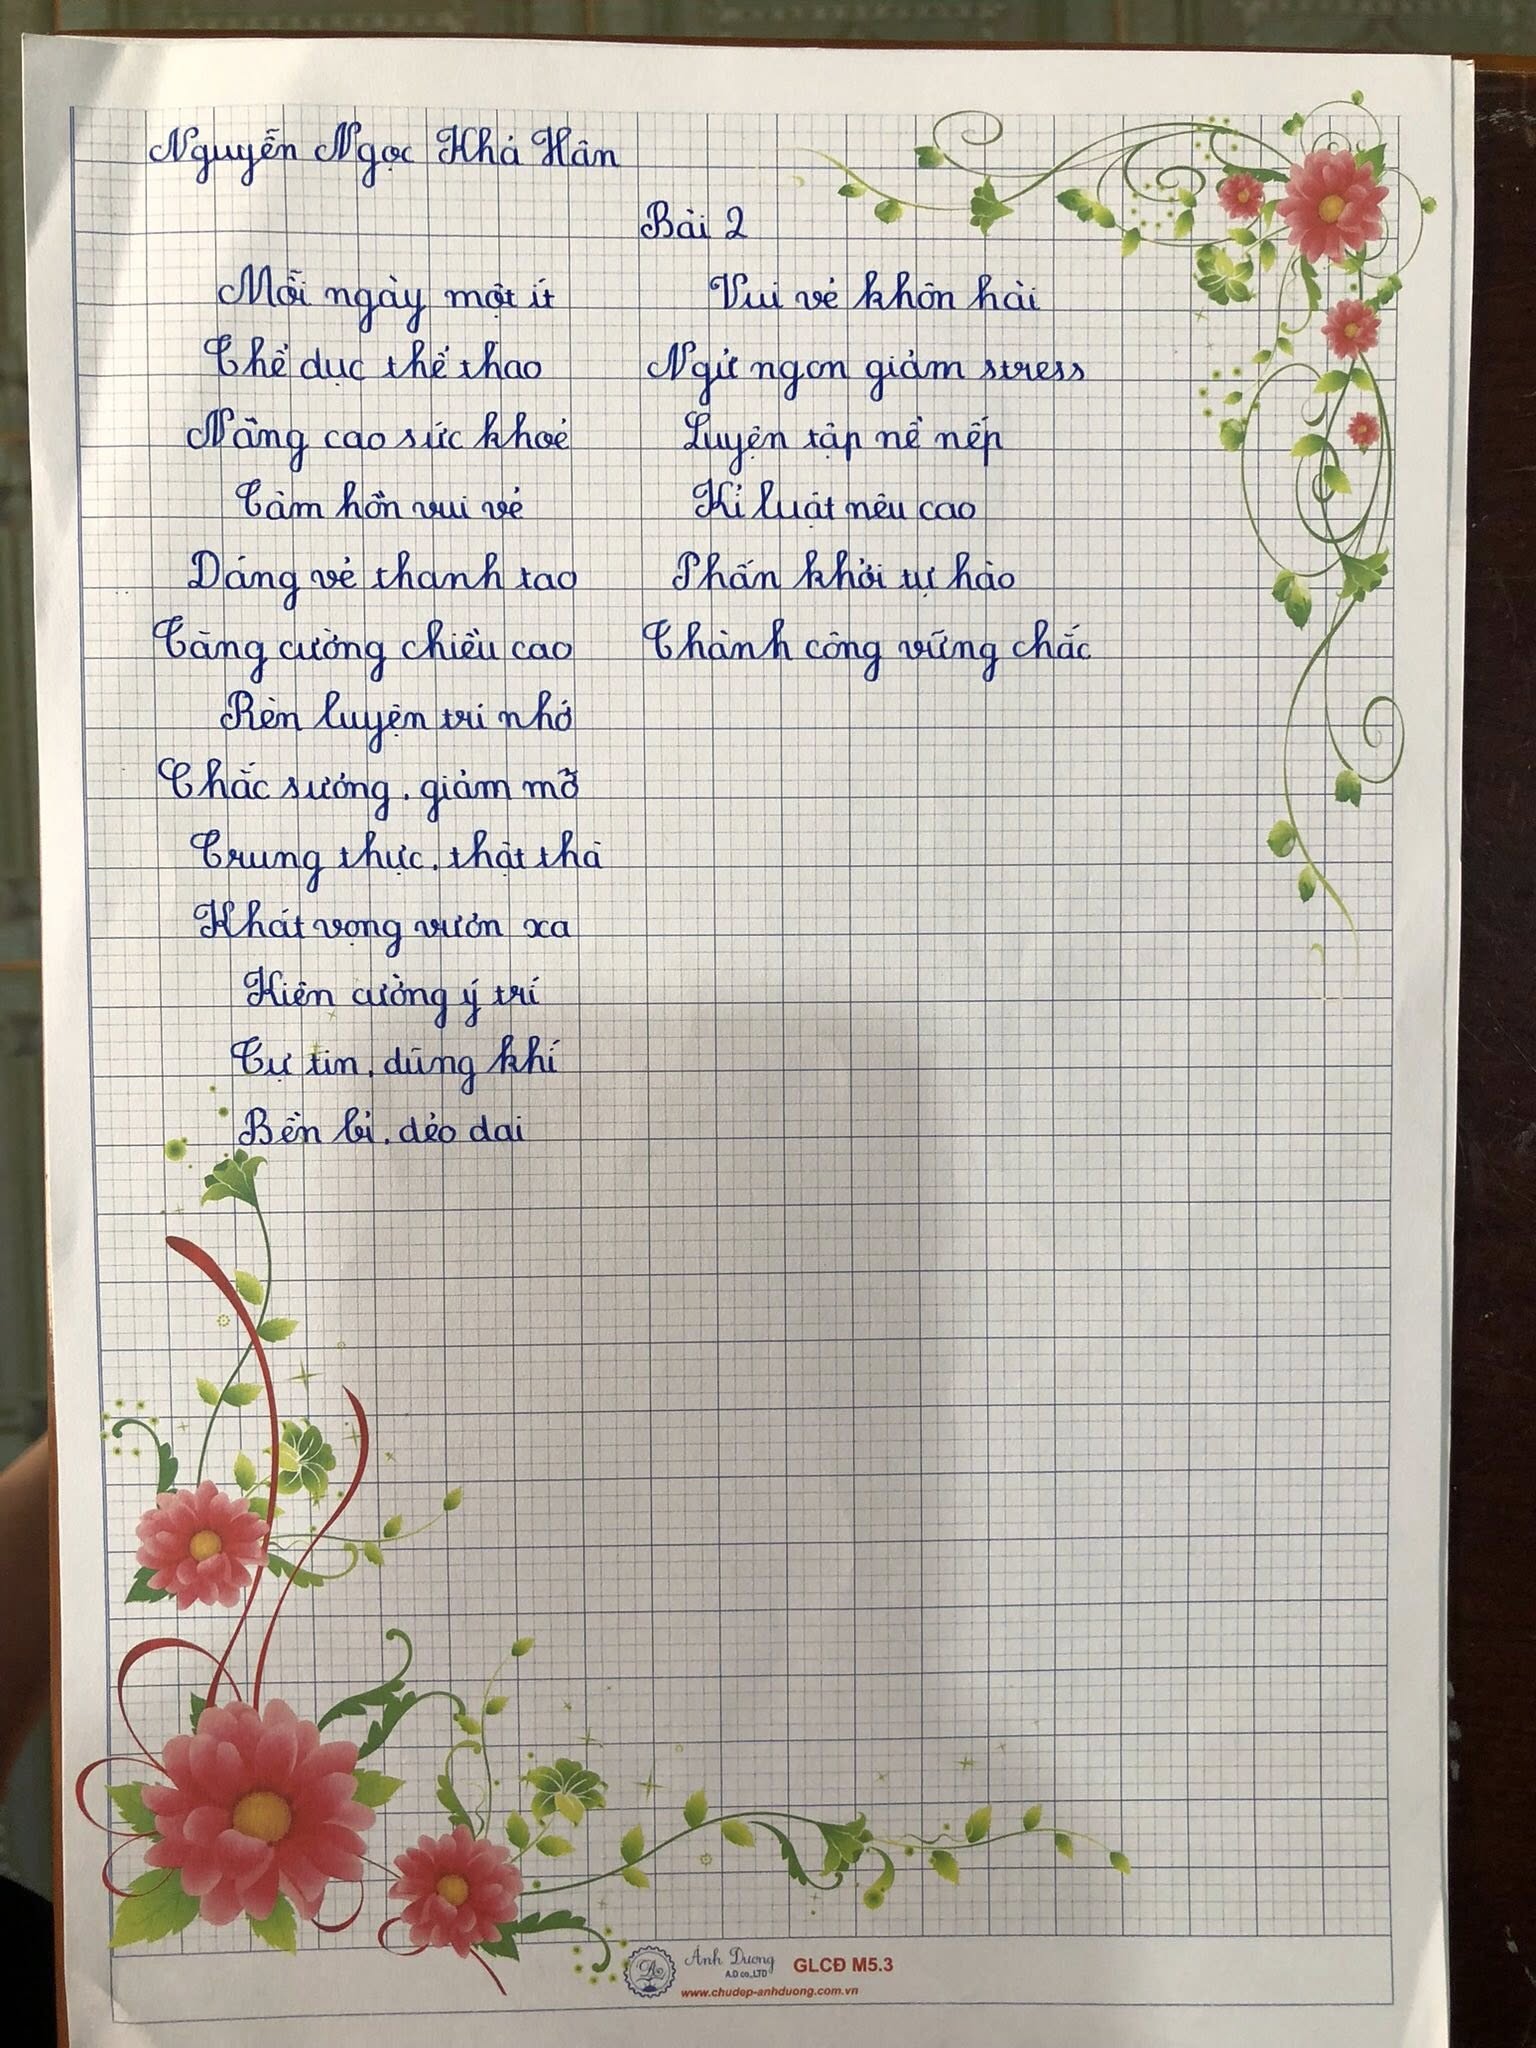 Nguyễn Ngọc Khả Hân
Bài 2
Mỗi ngày một ít
Thể dục thể thao
Nâng cao sức khoẻ
Tâm hồn vui vẻ
Dáng vẻ thanh tao
Tăng cường chiều cao
Rèn luyện trí nhớ
Chắc sương, giảm mỡ
Trung thực, thật thà
Khát vọng vươn xa
Kiên cường ý trí
Tự tin, dũng khí
Bền bỉ, dẻo dai
Vui vẻ khôn hài
Ngủ ngon giảm stress
Luyện tập nề nếp
Kỉ luật nêu cao
Phấn khởi tự hào
Thành công vững chắc
Ánh Dương
A.D co.,LTD
GLCĐ M5.3
www.chudep-anhduong.com.vn